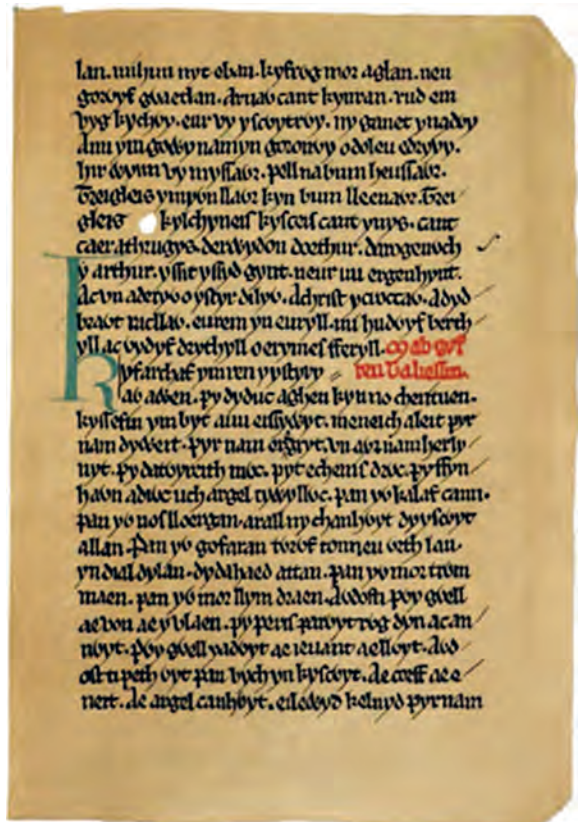 lan. mi hun nyt eban. kyfrỽg mor aglan. neu
gorỽyf gỽaetlan. Arnaỽ cant kynran. rud em
vyg kychỽy. eur vy yscỽytrỽy. ny ganet ynadỽy
Auu ym goỽy namyn goronỽy odoleu edrywy.
hir ỽynn vy myssaỽr. pell nabum heussaỽr.
Treigleis ymyỽn llaỽr kyn bum lleenaỽr. Trei
gleis kylchyneis kysceis cant ynys. cant
caer athrugys. derỽydon doethur. darogenỽch
y arthur. yssit yssyd gynt. neur uu ergenhynt.
Ac vn aderyỽ oystyr dilyỽ. Achrist ycroccaỽ. Adyd
braỽt racllaỽ. eurem yn euryll. mi hudỽyf berth
yll ac vydyf drythyll oerymes fferyll. Mabgyf
reu Taliessin.
Kyfarchaf ymren yystyry
aỽ aỽen. py dyduc aghen kyn no cherituen.
kyssefin ym byt auu eissyỽyt. meneich aleit pyr
nam dyweit. pyr nam eregryt. vn aỽr nam herly
nyt. Py datỽyreith mỽc. pyt echenis drỽc. py ffyn
haỽn adiỽc uch argel tyỽyllỽc. pan yỽ kalaf cann.
pan yỽ nos lloergan. arall ny chanhỽyt dyyscỽyt
allan. Pan yỽ gofaran tỽrỽf tonneu ỽrth lan.
yn dial dylan. dydahaed attan. pan yỽ mor trỽm
maen. pan yỽ mor llym draen. Aỽdosti pỽy gỽell
ae von ae y vlaen. py peris parỽyt rỽg dyn ac an
nỽyt. pỽy gỽell yadỽyt ae ieuanc ae llỽyt. Aỽd
ost ti peth ỽyt pan vych yn kyscỽyt. Ae corff ae e
neit. Ae argel canhỽyt. eilewyd keluyd pyr nam